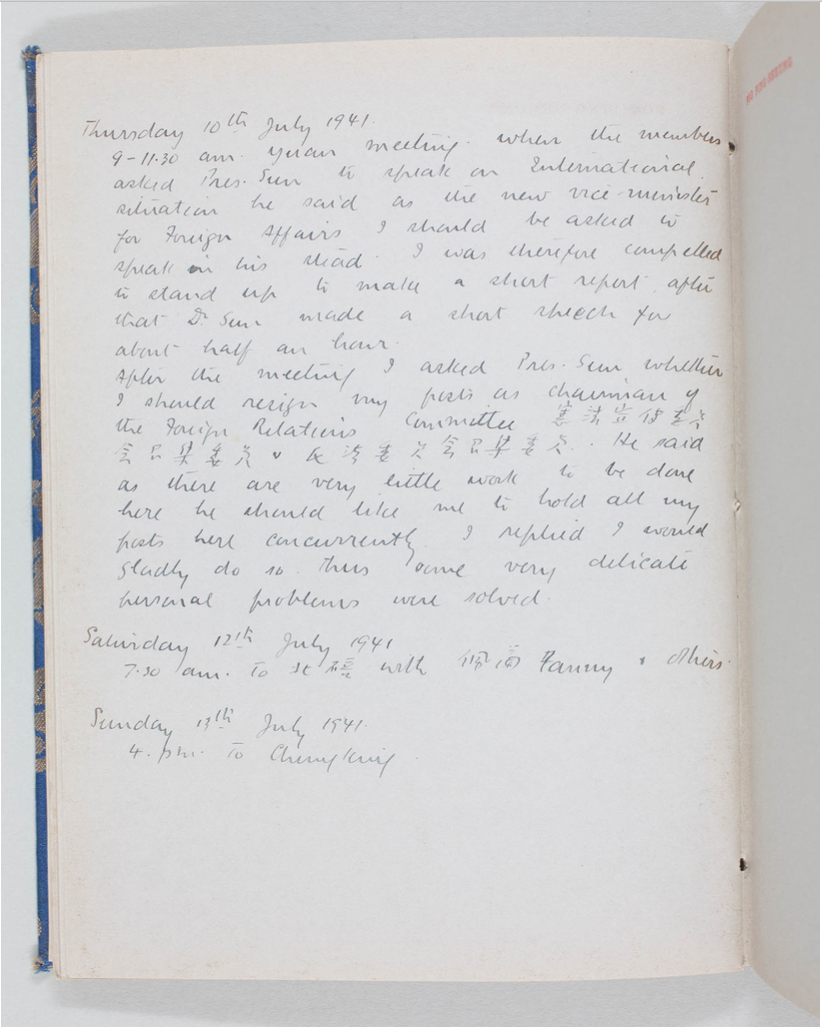 Thursday 10th July 1941.
9-11.30 am. Yuan meeting. when the members
asked Pres. Sun to speak on International
situation he said as the new vice-minister
for Foreign Affairs I should be asked to
speak in his stead. I was therefore compelled
to stand up to make a short report, after
that Dr. Sun made a short speech for
about half an hour.
After the meeting I asked Pres. Sun whether
I should resign my posts as chairman of
the Foreign Relations Committee 憲法宣傳委員
會召集委員 & 法委員會召集委員. He said
as there are very little work to be done
here he should like me to hold all my
posts here concurrently. I replied I would
gladly do so. Thus some very delicate
personal problems were solved.
Saturday 12th July 1941
7.30 am. To 北碚 with Fanny & others.
Sunday 13th July 1941.
4. pm. To Chungking